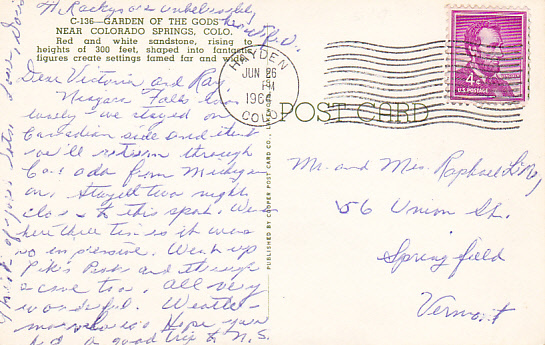 C-136—GARDEN OF THE GODS
NEAR COLORADO SPRINGS, COLO.
Red and white sandstone, rising to
heights of 300 feet, shaped into fantastic
figures create settings famed far and wide.
HAYDEN
JUN 26
PM
COLO.
4¢
U.S. POSTAGE
POST CARD
PUBLISHED BY COOPER POST CARD CO.
Dear Victoria and Ray
Niagara Falls was
lovely we stayed on
Canadian side and think
we'll return through
Canada from Michigan
on. Stayed two nights
close to this spot. Were
here three times it was
so impressive. Went up
Pike's Peak and through
a cave too. All very
wonderful. Weather
marvelous. Hope you
had a good trip to N.S.
The Rockys are unbelievably
beautiful.
Mr. and Mrs. Raphael
56 Union St.
Springfield
Vermont